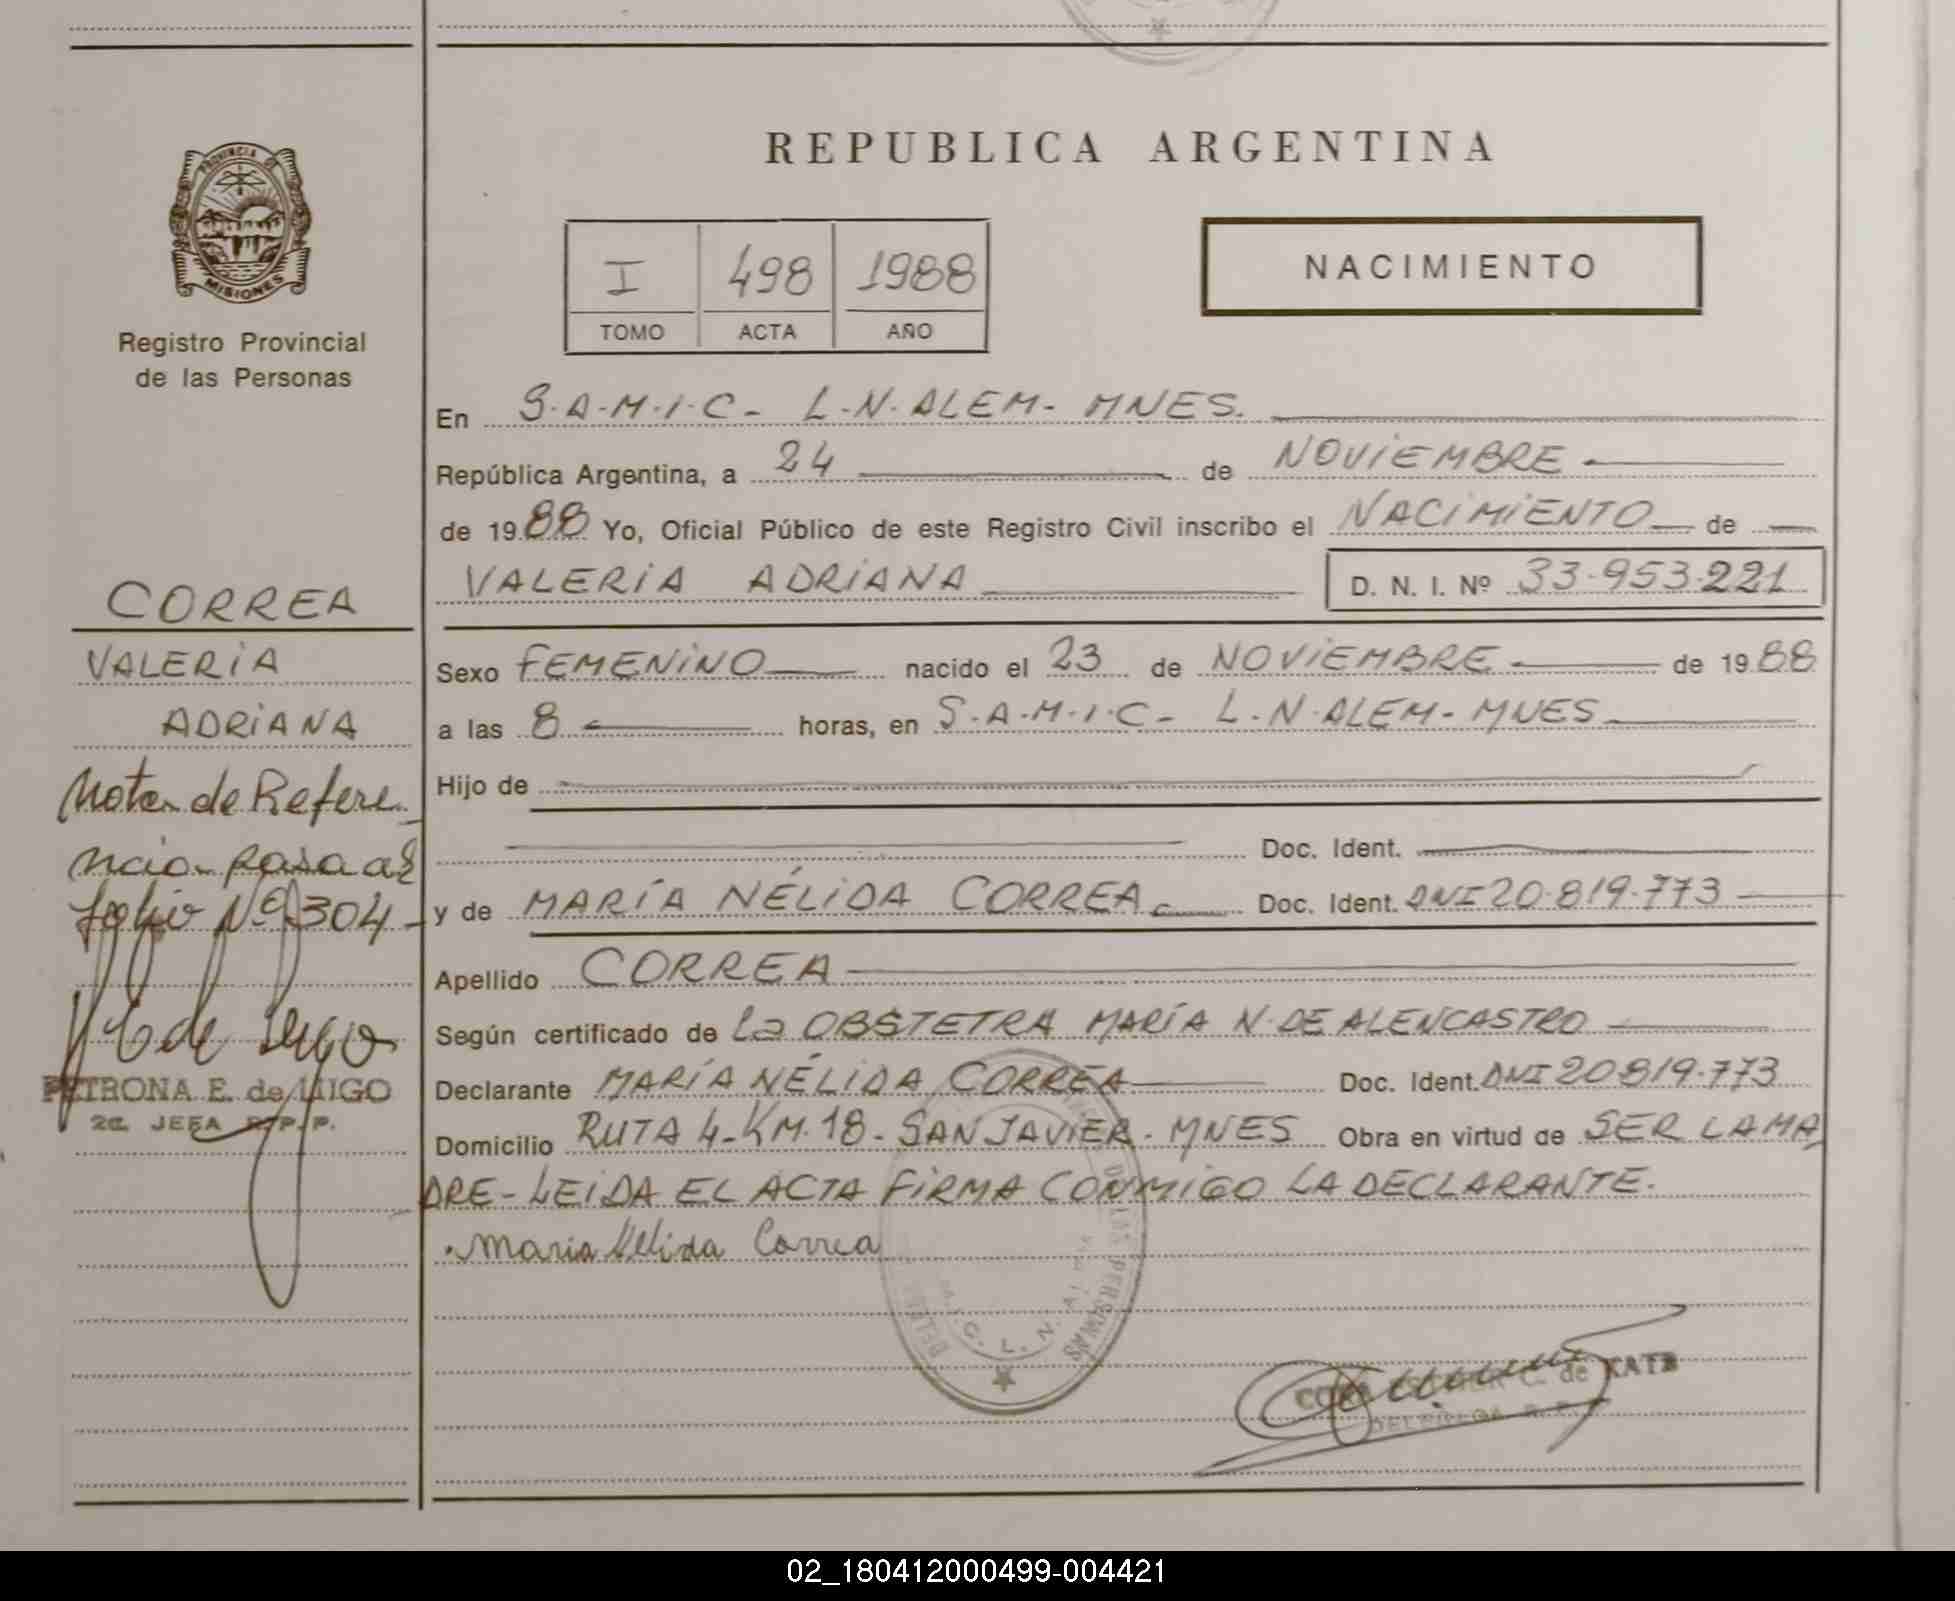 REPUBLICA ARGENTINA
PROVINCIA DE
MISIONES
Registro Provincial
de las Personas
I 498 1988
TOMO ACTA AÑO
NACIMIENTO
En S.A.M.I.C- L.N.ALEM- MNES.
República Argentina, a 24 de NOViEMBRE
de 1988 Yo, Oficial Público de este Registro Civil inscribo el NACiMiENTO de
VALERiA ADRiANA D. N. I. Nº 33.953.221
CORREA
VALERiA
ADRiANA
Nota de Refere
ncia pasa al
folio Nº 304-
PETRONA E. de LUGO
2a. JEFA R.P.P.
Sexo FEMENiNO nacido el 23 de NOViEMBRE de 1988
a las 8 horas, en S.A.M.I.C- L.N.ALEM- MNES
Hijo de
Doc. Ident.
y de MARÍA NÉLiDA CORREA Doc. Ident. DNI 20.819.773
Apellido CORREA
Según certificado de la OBSTETRA MARÍA N. DE ALENCASTRO
Declarante MARÍA NÉLIDA CORREA Doc. Ident. DNI 20819.773
Domicilio RUTA 4-KM.18- SAN JAVIER- MNES Obra en virtud de SER LA MA
DRE-LEIDA EL ACTA FiRMA CONMIGO LA DECLARANTE.
Maria Nelida Correa
DE LAS PERSONAS
L. N.
C. de KATZ
DELEGADA R. P.
02_180412000499-004421